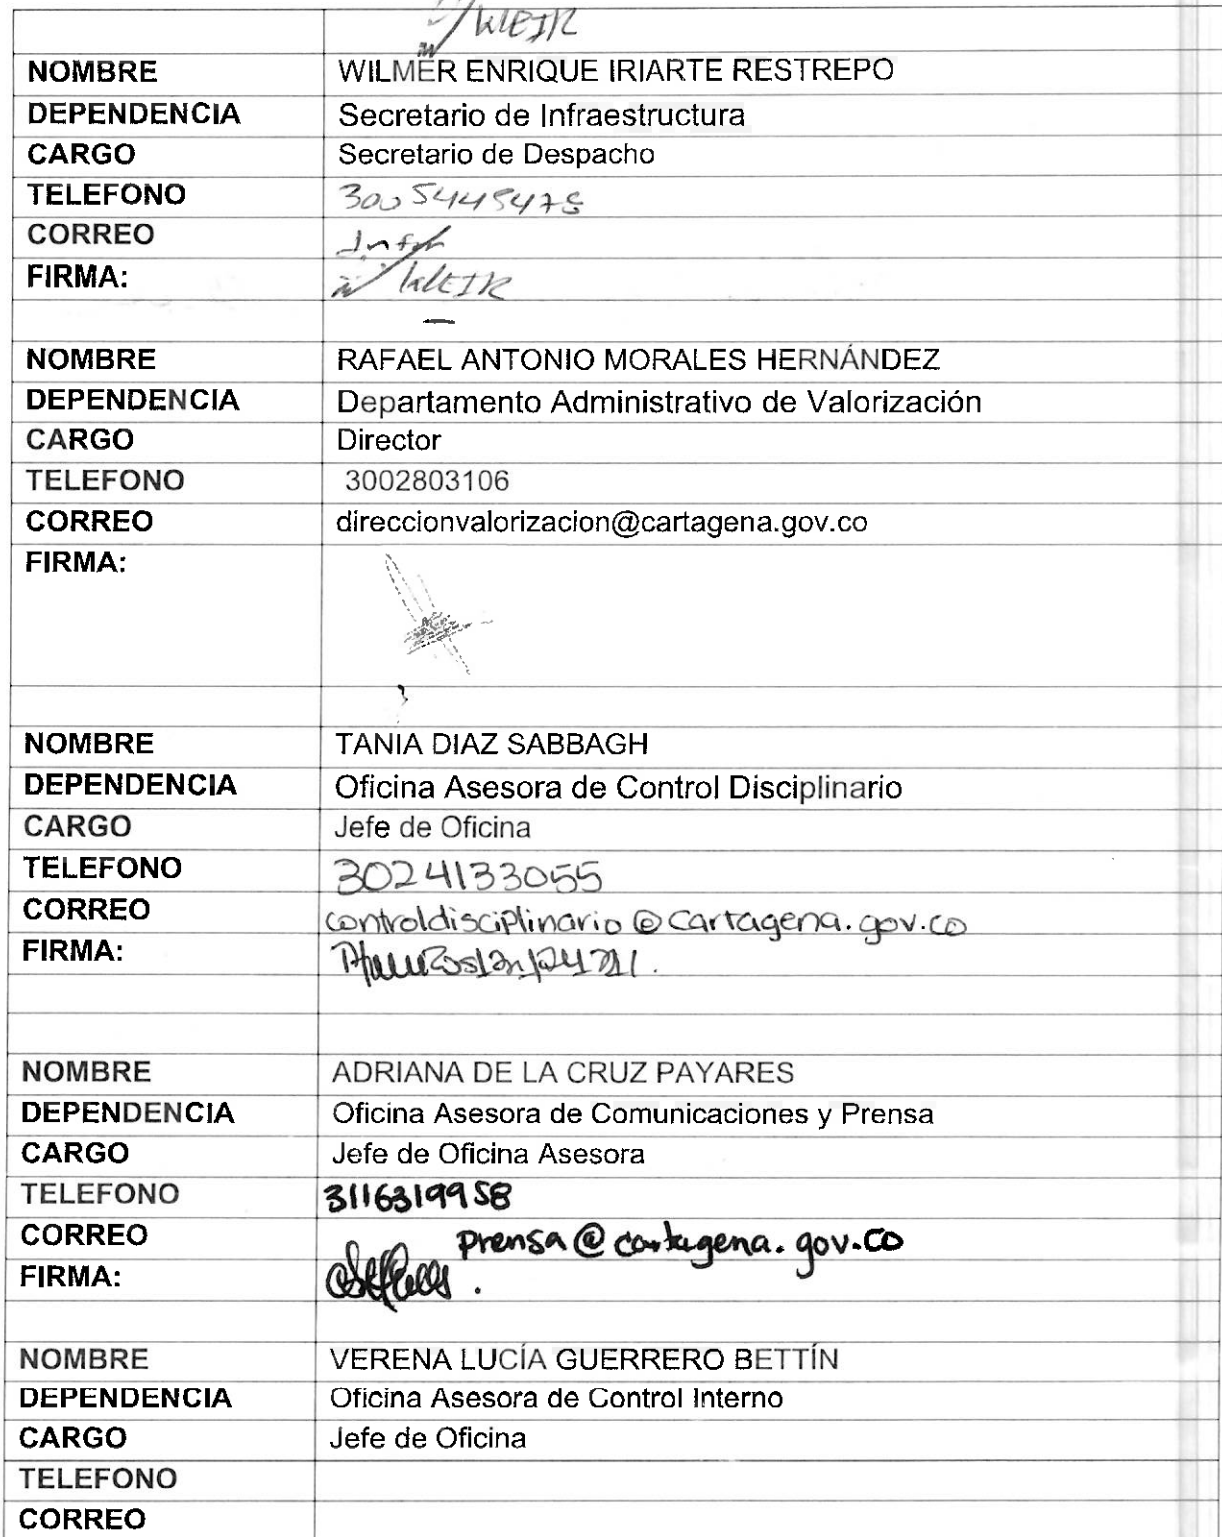 NOMBRE WILMER ENRIQUE IRIARTE RESTREPO
DEPENDENCIA Secretario de Infraestructura
CARGO Secretario de Despacho
TELEFONO
CORREO
FIRMA:
NOMBRE RAFAEL ANTONIO MORALES HERNÁNDEZ
DEPENDENCIA Departamento Administrativo de Valorización
CARGO Director
TELEFONO 3002803106
CORREO direccionvalorizacion@cartagena.gov.co
FIRMA:
NOMBRE TANIA DIAZ SABBAGH
DEPENDENCIA Oficina Asesora de Control Disciplinario
CARGO Jefe de Oficina
TELEFONO 3024133055
CORREO controldisciplinario@cartagena.gov.co
FIRMA:
NOMBRE ADRIANA DE LA CRUZ PAYARES
DEPENDENCIA Oficina Asesora de Comunicaciones y Prensa
CARGO Jefe de Oficina Asesora
TELEFONO 3116319958
CORREO prensa@cartagena.gov.co
FIRMA:
NOMBRE VERENA LUCÍA GUERRERO BETTÍN
DEPENDENCIA Oficina Asesora de Control Interno
CARGO Jefe de Oficina
TELEFONO
CORREO